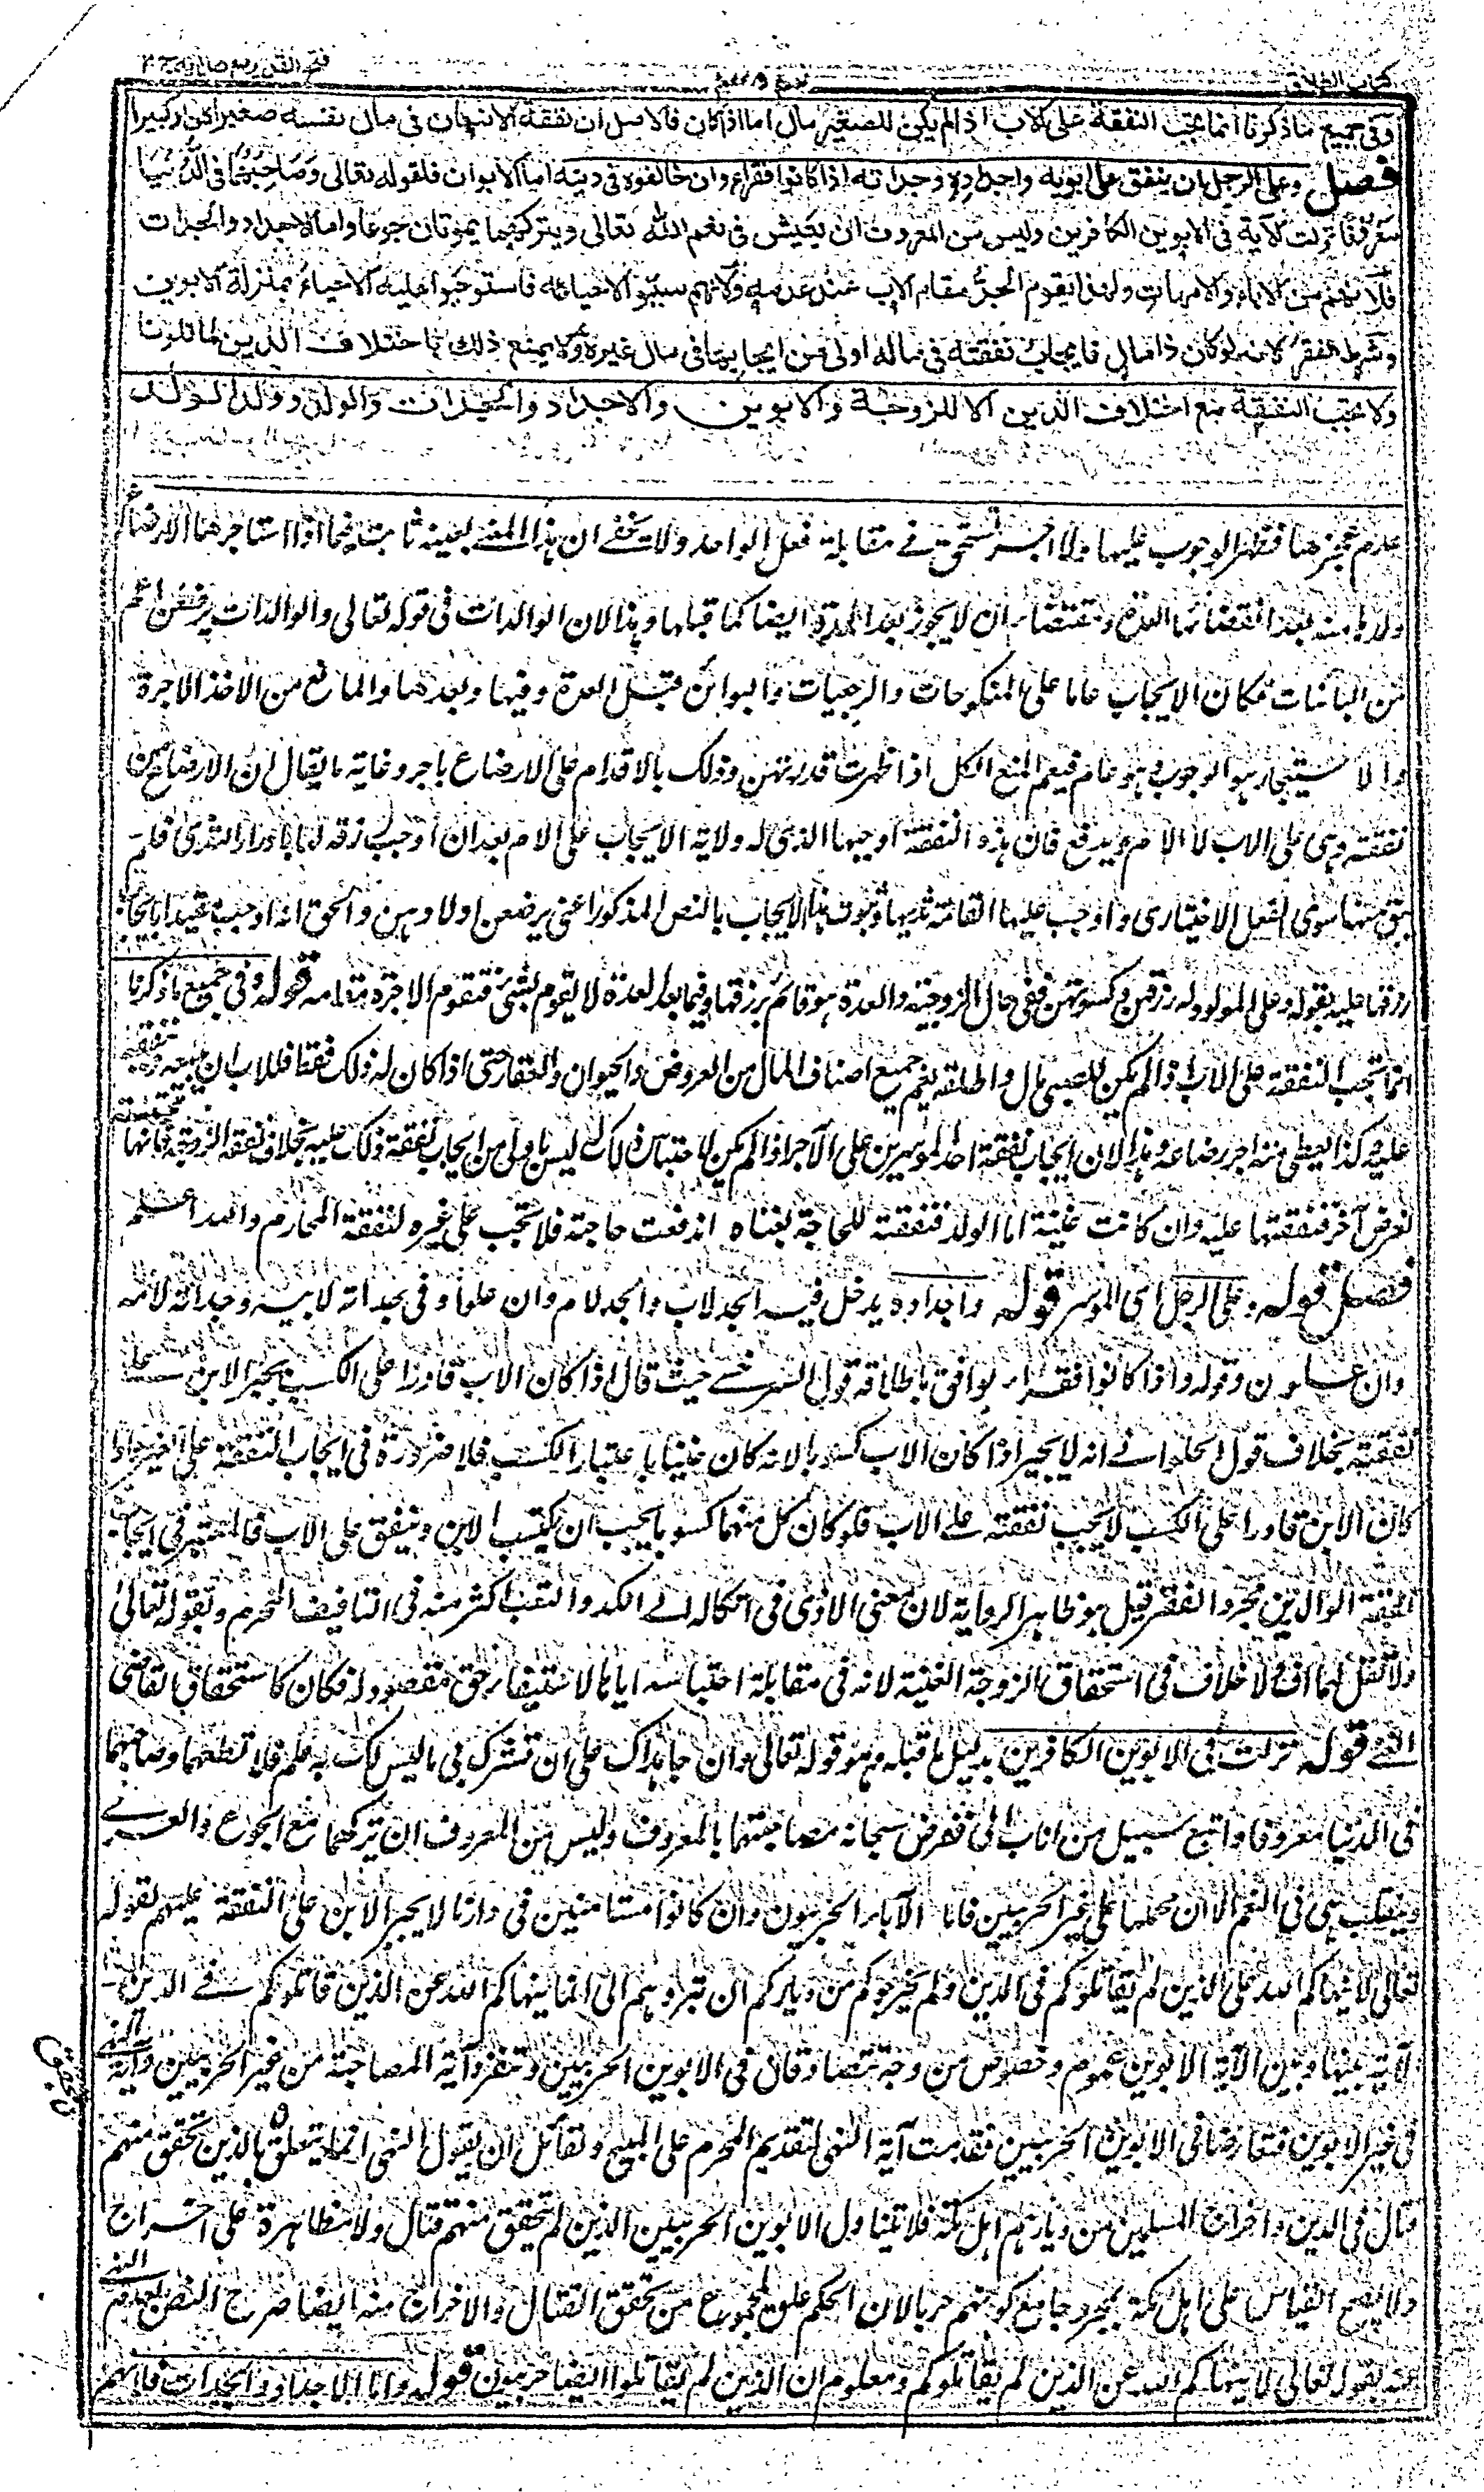 كتاب الطلاق
فتح القدير مع هدايه ج ٢
وفي جميع ما ذكرنا انما تجب النفقة على الاب اذا لم يكن للصغير مال اما اذا كان فالاصل ان نفقة الانسان في مال نفسه صغيرا كان او كبيرا
فصل وعلى الرجل ان ينفق على ابويه واجداده وجداته اذا كانوا فقراء وان خالفوه في دينه اما الابوان فلقوله تعالى وصاحبهما في الدنيا
معروفا نزلت الآية في الابوين الكافرين وليس من المعروف ان يعيش في نعم الله تعالى ويتركهما يموتان جوعا واما الاجداد والجدات
فلانهم من الآباء والامهات ولهذا يقوم الجد مقام الاب عند عدمه ولانهم سببوا لاحيائه فاستوجبوا عليه الاحياء بمنزلة الابوين
وشرط الفقر لانه لو كان ذا مال فايجاب نفقته في ماله اولى من ايجابها في مال غيره ولا يمنع ذلك باختلاف الدين لما تلونا
ولا تجب النفقة مع اختلاف الدين الا للزوجة والابوين والاجداد والجدات والولد وولد الولد
عدم عجزها فظهر الوجوب عليها ولا اجر يستحق في مقابلة فعل الواحد ولا يخفى ان هذا المعنى بعينه ثابت فيما اذا استاجرها لارضاع
ولدها منه بعد انقضاء العدة ومقتضاه ان لا يجوز بعد المدة ايضا كما قبلها وهذا لان الوالدات في قوله تعالى والوالدات يرضعن اعم
من البائنات فكان الايجاب عاما على المنكوحات والرجعيات والبوائن قبل العدة وفيها وبعدها والمانع من الاخذ الاجرة
والاستيجار هو الوجوب وهو عام فيعم المنع الكل اذا ظهرت قدرتهن وذلك بالاقدام على الارضاع باجر وغاية ما يقال ان الارضاع من
نفقته وهي على الاب لا الام ويدفع فان هذه النفقة اوجبها الذي له ولاية الايجاب على الام بعد ان اوجب رزقه لها بادرار الثدي فلم
يبق منها سوى الفعل الاختياري واوجب عليها القامة ثديها وثبوت هذا الايجاب بالنص المذكور اعني يرضعن اولادهن والحق انه اوجبه مقيدا بايجاب
رزقها عليه بقوله وعلى المولود له رزقهن وكسوتهن ففي حال الزوجية والعدة هو قائم برزقها وفيما بعد العدة لا يقوم بشئ فتقوم الاجرة مقامه قوله وفي جميع ما ذكرنا
انما تجب النفقة على الاب اذا لم يكن للصبي مال واطلقه فيعم جميع اصناف المال من العروض والحيوان والعقار حتى اذا كان له ذلك فقط فللاب ان يبيعه وينفقه
عليه وكذا يعطى منه اجر رضاعه وهذا لان ايجاب نفقة احد الموسرين على الآخر اذا لم يكن لاحتباس ذلك ليس باولى من ايجاب نفقة ذلك عليه بخلاف نفقة الزوجة فانها
لغرض آخر فنفقتها عليه وان كانت غنية اما الولد فنفقته للحاجة بغناه اندفعت حاجته فلا تجب على غيره لنفقة المحارم والله اعلم
فصل قوله وعلى الرجل اى الموسر قوله واجداده يدخل فيه الجد لاب والجد لام وان علوا وفي جداته لابيه وجداته لامه
وان علون وقوله اذا كانوا فقراء يوافق باطلاقه قول السرخسي حيث قال اذا كان الاب قادرا على الكسب يجبر الابن على
نفقته بخلاف قول الحلواني انه لا يجبر اذا كان الاب كسوبا لانه كان غنيا باعتبار الكسب فلا ضرورة في ايجاب النفقة على الغير واذا
كان الابن قادرا على الكسب لا تجب نفقته على الاب فلو كان كل منهما كسوبا يجب ان يكتسب الابن وينفق على الاب فالمعتبر في ايجاب
نفقة الوالدين مجرد الفقر قيل هو ظاهر الرواية لان معنى الاذى في اتكاله الى الكد والتعب اكثر منه في التافيف المحرم بقوله تعالى
ولا تقل لهما اف ولا خلاف في استحقاق الزوجة الغنية لانه في مقابلة احتباسه اياها لاستيفاء حق مقصود له فكان كاستحقاق القاضي
الغني قوله نزلت في الابوين الكافرين بدليل ما قبله وهو قوله تعالى وان جاهداك على ان تشرك بي ما ليس لك به علم فلا تطعهما وصاحبهما
في الدنيا معروفا واتبع سبيل من اناب الى ففرض سبحانه مصاحبتهما بالمعروف وليس من المعروف ان يتركهما مع الجوع والعرى
ويتقلب هي في النعم الا ان محلها على غير الحربيين فاما الآباء الحربيون وان كانوا مستامنين في دارنا لا يجبر الابن على النفقة عليهم لقوله
تعالى لا ينهاكم الله عن الذين لم يقاتلوكم في الدين ولم يخرجوكم من دياركم ان تبروهم الى انما ينهاكم الله عن الذين قاتلوكم في الدين
الآية بينها وبين الآية الابوين عموم وخصوص من وجه تصادقان في الابوين الحربيين وتنفرد آية المصاحبة من غير الحربيين وآية النهي
في غير الابوين فتعارضا في الابوين الحربيين فقدمت آية النهي لتقديم المحرم على المبيح ولقائل ان يقول النهي انما يتعلق بالذين تحقق منهم
قتال في الدين واخراج المسلمين من ديارهم اهل مكة فلا تتناول الابوين الحربيين الذين لم تحقق منهم قتال ولا مظاهرة على اخراج
ولا يصح القياس على اهل مكة بمجرد جامع كونهم حربا لان الحكم علق بمجموع من تحقق القتال والاخراج منه ايضا صرح النص بعدم النهي
عنه بقوله تعالى لا ينهاكم الله عن الذين لم يقاتلوكم ومعلوم ان الذين لم يقاتلوا ايضا حربيون قوله واما الاجداد والجدات فلانهم